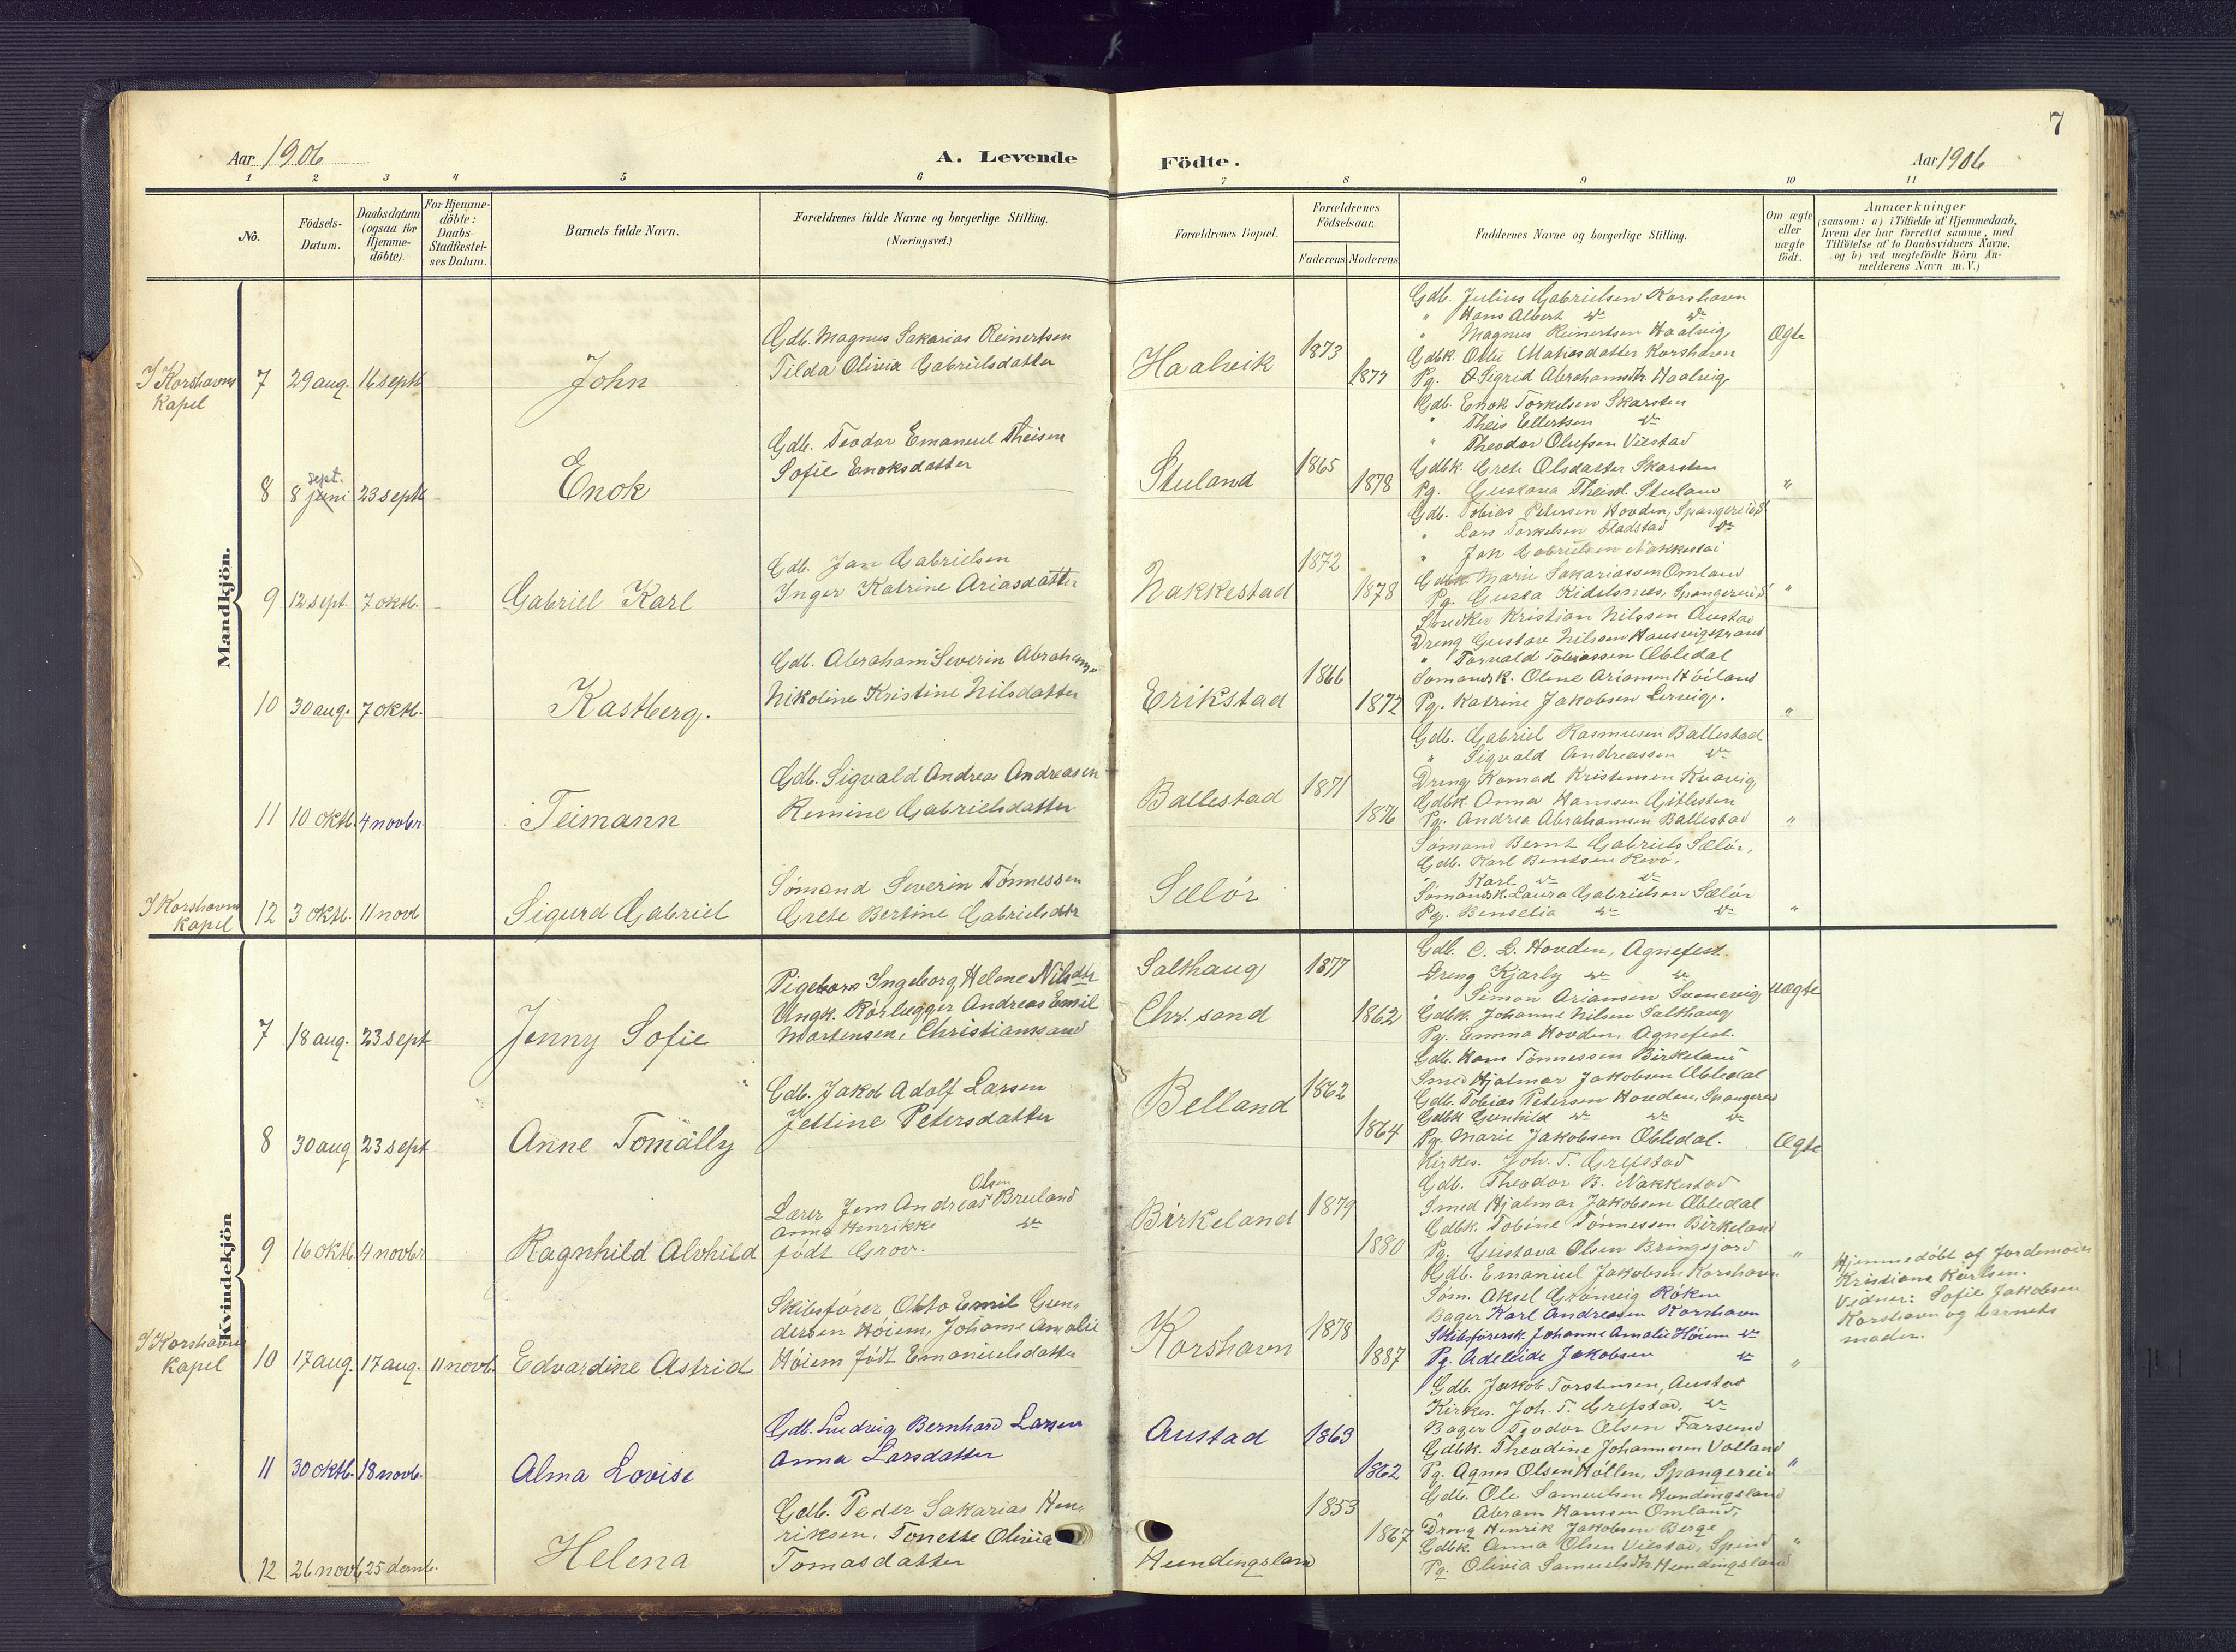 7
Aar 1906
A. Levende
Födte.
Aar 1906
1 2 3 4 5 6 7 8 9 10 11
No.
Födsels-
Datum.
Daabsdatum
(ogsaa for
Hjemme-
döbte).
For Hjemme-
döbte:
Daabs-
Stadfæstel-
ses Datum.
Barnets fulde Navn.
Forældrenes fulde Navne og borgerlige Stilling.
(Næringsvei.)
Forældrenes Bopæl.
Forældrenes
Födselsaar.
Faderens Moderens
Faddernes Navne og borgerlige Stilling.
Om ægte
eller
uægte
födt.
Anmærkninger
(saasom: a) i Tilfælde af Hjemmedaab,
hvem der har forrettet samme, med
Tilföielse af to Daabsvidners Navne.
og b) ved uægtefödte Börn An-
melderens Navn m. V.)
Mandkjön.
I Korshavns
Kapel
7 29 aug. 16 septb
John
Gdb. Magnus Sakarias Reinertsen
Tilda Olivia Gabrielsdatter
Haalvik
1873
1877
Gdb. Julius Gabrielsen Korshavn
" Hans Albert do do
" Magnus Reinertsen Haalvig
Gdbk. Otte Matiasdatter Korshavn
Pg. Sigrid Abrahamsdtr. Haalvig
Ægte
8 8 juni sept. 23 septb
Enok
Gdb. Teodor Emanuel Theisen
Sofie Enoksdatter
Stuland
1865
1878
Gdb. Enok Torkelsen Skarsten
" Theis Ellertsen do
" Theodor Olufsen Viestad
Gdbk. Grete Olsdatter Skarsten
Pg. Gustava Theisd. Stuland
"
9 12 sept. 7 oktb.
Gabriel Karl
Gdb. Jan Gabrielsen
Inger Katrine Ariasdatter
Nakkestad
1872
1878
Gdb. Tobias Petersen Hovden, Spangereid
" Lars Torkelsen Stadstad do
" Jan Gabrielsen Nakkestad
Gdbk. Marie Sakariassen Omland
Pg. Gusta Kidelsnes, Spangereid
"
10 30 aug. 7 oktb.
Kastberg.
Gdb. Abraham Severin Abrahams.
Nikoline Kristine Nilsdatter
Erikstad
1866
1872
Snedker Kristian Nilssen Austad
Dreng Gustav Nilssen Hausvigstrand
" Torvald Tobiassen Æbledal
Sømandsk. Oline Ariansen Høiland
Pg. Katrine Jakobsen Lervig.
"
11 10 oktb. 4 novbr.
Teimann
Gdb. Sigvald Andreas Andreasen
Remine Gabrielsdatter
Ballestad
1871
1876
Gdb. Gabriel Rasmusen Ballestad
" Sigvald Andreassen do
Dreng Konrad Kristensen Kvavig
Gdbk. Anna Hanssen Gitlesten
Pg. Andrea Abrahamsen Ballestad
"
I Korshavns
Kapel
12 3 oktb. 11 novb
Sigurd Gabriel
Sømand Severin Tønnessen
Grete Bertine Gabrielsdtr
Sælør
Sømand Bernt Gabriels Sælør,
Gdb. Karl Bentsen Revø,
" Karl do do
Sømandsk. Laura Gabrielsen Sælør
Pg. Benselia do do
"
Kvindekjön
7 18 aug. 23 sept
Jenny Sofie
Pige Ingeborg Helene Nilsdtr
Ungk. Rørlægger Andreas Emil
Mortensen, Christianssand
Salthaug
Chr.sand
1877
1862
Gdb. C. L. Hovden, Agnefest.
Dreng Kjarly do do
" Simon Ariansen Svennevig
Gdbk. Johanne Nilsen Salthaug
Pg. Emma Hovden, Agnefest.
uægte
8 30 aug 23 sept
Anne Tomally
Gdb. Jakob Adolf Larsen
Jettine Petersdatter
Belland
1862
1864
Gdb. Hans Tønnessen Birkeland
Smed Hjalmar Jakobsen Æbledal
Gdb. Tobias Petersen Hovden, Spangereid
Gdbk Gunhild do do do
Pg. Marie Jakobsen Æbledal.
Ægte
9 16 oktb. 4 novbr
Ragnhild Alvhild
Lærer Jem Andreas Olsen Breland
Anna Henrikke do
født Grov.
Birkeland
1879
1880
Kirkes. Joh. T. Grefstad
Gdb. Theodor B. Nakkestad
Smed Hjalmar Jakobsen Æbledal
Gdbk. Tobine Tønnessen Birkeland
Pg. Gustava Olsen Bringsjord
"
I Korshavns
Kapel
10 17 aug. 17 aug. 11 novb.
Edvardine Astrid
Skibsfører Otto Emil Gun-
dersen Høiem, Johanne Amalie
Høiem født Emanuelsdatter
Korshavn
1878
1887
Gdb. Emanuel Jakobsen Korshavn
Søm. Aksel Grønvig Røken
Bager Karl Andreasen Korshavn
Skibsførersk. Johanne Amalie Høiem do
Pg. Adeleide Jakobsen do
"
Hjemmedøbt af Jordemoder
Kristiane Karlsen.
Vidner: Sofie Jakobsen
Korshavn og barnets
moder.
11 30 oktb. 18 novb.
Alma Lovise
Gdb. Ludvig Bernhard Larsen
Anna Larsdatter
Austad
1863
1862
Gdb. Jakob Torstensen, Austad
Kirkes. Joh. T. Grefstad, do
Bager Teodor Olsen Farsund
Gdbk. Theodine Johannesen Volland
Pg. Agnes Olsen Høllen, Spangereid
"
12 26 novb 25 decmb.
Helena
Gdb. Peder Sakarias Hen-
riksen, Tonette Olivia
Tomasdatter
Hundingsland
1853
1867
Gdb. Ole Samuelsen Hundingsland
" Abram Hanssen Omland,
Dreng Henrik Jakobsen Berge
Gdbk. Anna Olsen Viestad, Spind
Pg. Olivia Samuelsdtr. Hundingsland
"